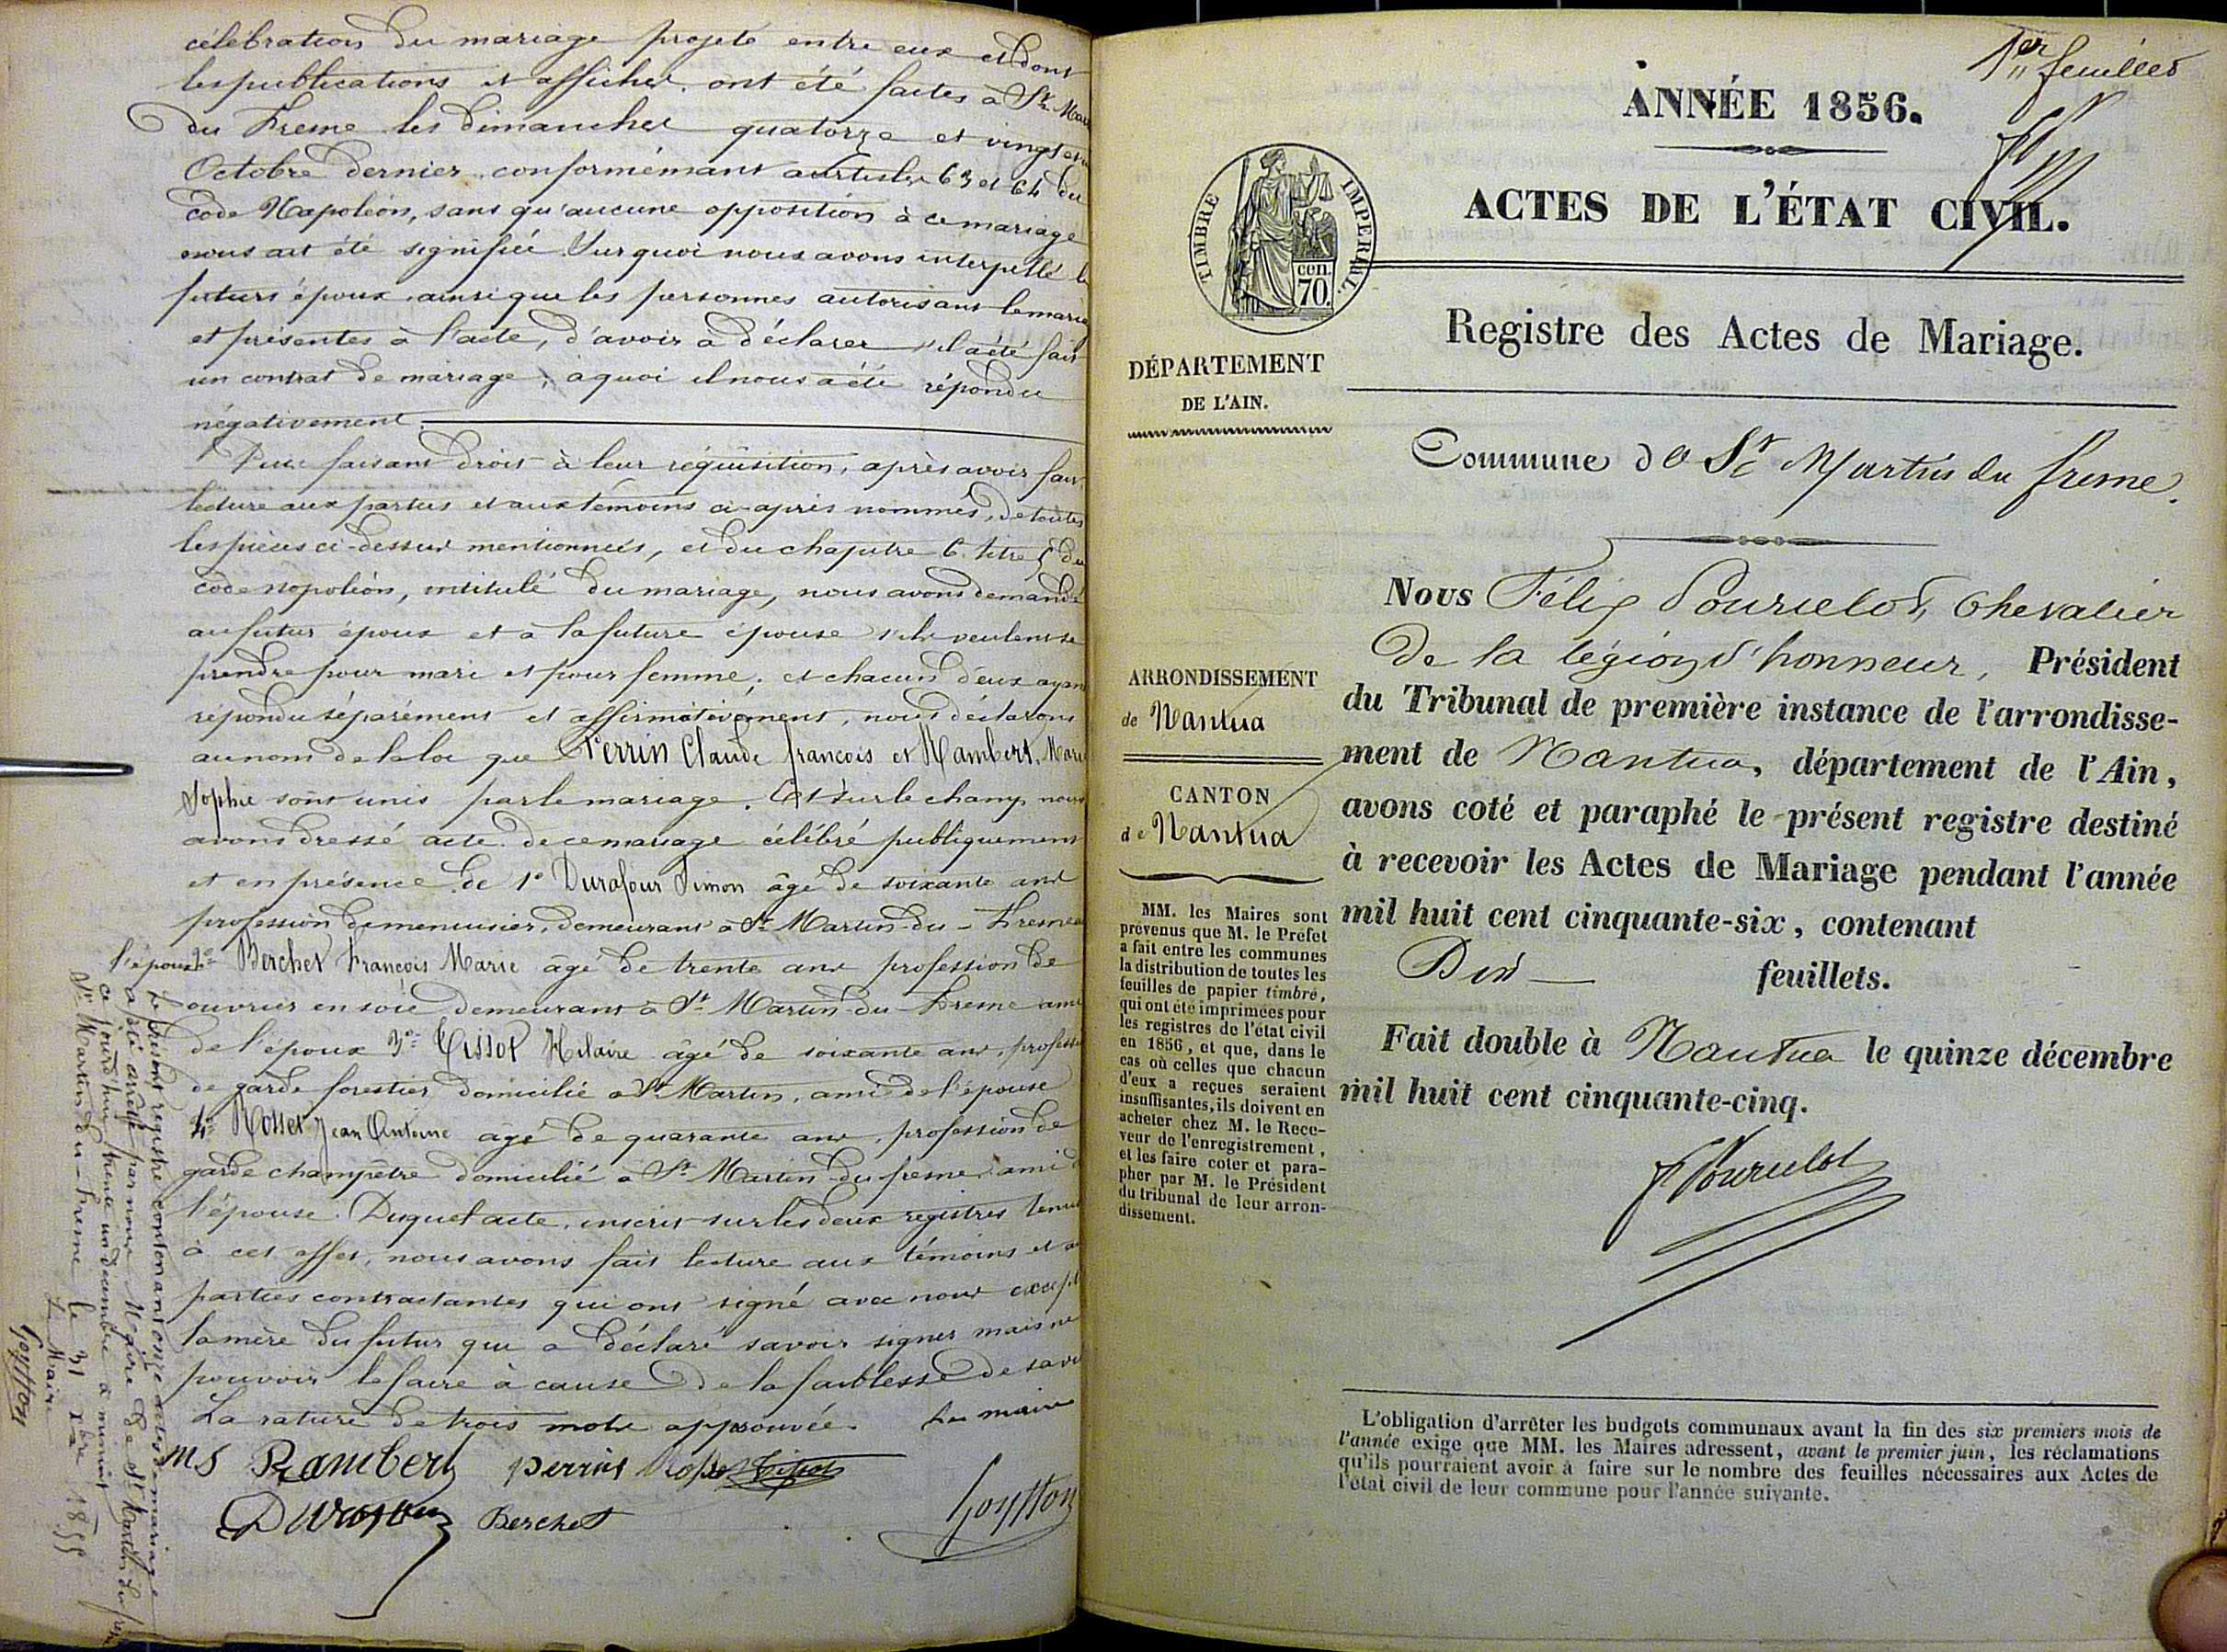 célébration du mariage projeté entre eux et dont
les publications et affiches ont été faites à St. Mar
du Fresne les dimanches quatorze et vingt et u
Octobre dernier conformémant articles 63 et 64 du
code Napoléon, sans qu'aucune opposition à ce mariage
nous ait été signifiée. Sur quoi nous avons interpellé le
futurs époux, ainsi que les personnes autorisant le maria
et présentes à l'acte, d'avoir à déclarer s'il a été fait
un contrat de mariage; à quoi il nous a été répondu
négativement.
Puis faisant droit à leur réquisition, après avoir fait
lecture aux parties et aux témoins ci-après nommés, de toutes
les pièces ci-dessus mentionnées, et du chapitre 6 titre 5 du
code napoléon, intitulé du mariage, nous avons demandé
au futur époux et à la future épouse s'ils veulent se
prendre pour mari et pour femme; et chacun d'eux ayant
répondu séparément et affirmativement, nous déclarons
au nom de la loi que Perrin Claude françois et Rambert, Marie
Sophie sont unis par le mariage. Et sur le champ nous
avons dressé acte de ce mariage célébré publiquement
et en présence de 1° Durafour Simon âgé de soixante ans
profession de menuisier, demeurant à St. Martin-du-Fresne
l'époux 2° Berchet François Marie âgé de trente ans profession de
ouvrier en soie demeurant à St. Martin-du-Fresne ami
de l'époux 3° Tissot Hilaire âgé de soixante ans, professi
de garde forestier domicilié à St. Martin, ami de l'épouse
4° Rosset Jean Antoine âgé de quarante ans, profession de
garde champêtre domicilié à St. Martin-du-fresne ami d
l'épouse. Duquel acte, inscrit sur les deux registres tenus
à cet effet, nous avons fait lecture aux témoins et a
parties contractantes qui ont signé avec nous except
la mère du futur qui a déclaré savoir signer mais ne
pouvoir le faire à cause de la faiblesse de sa vu
La rature de trois mots approuvée. Le maire
ms Rambert perrin Rosset Tissot
Durafour Berchet Goyffon
Le présent registre contenant onze actes de mariage
a été arrêté par nous Maire de St. Martin du fres
ce jourd'hui trente un décembre à minuit
St. Martin-du-Fresne le 31 xbre 1855
Le Maire
Goyffon
1er feuillet
ANNÉE 1856.
ACTES DE L'ÉTAT CIVIL.
TIMBRE IMPERIAL.
cen.
70.
Registre des Actes de Mariage.
DÉPARTEMENT
DE L'AIN.
Commune de St Martin du fresne.
ARRONDISSEMENT
de Nantua
CANTON
de Nantua
MM. les Maires sont
prévenus que M. le Préfet
a fait entre les communes
la distribution de toutes les
feuilles de papier timbré,
qui ont été imprimées pour
les registres de l'état civil
en 1856, et que, dans le
cas où celles que chacun
d'eux a reçues seraient
insuffisantes, ils doivent en
acheter chez M. le Rece-
veur de l'enregistrement,
et les faire coter et para-
pher par M. le Président
du tribunal de leur arron-
dissement.
Nous Félix Pourcelot, Chevalier
de la légion d'honneur, Président
du Tribunal de première instance de l'arrondisse-
ment de Nantua, département de l'Ain,
avons coté et paraphé le présent registre destiné
à recevoir les Actes de Mariage pendant l'année
mil huit cent cinquante-six, contenant
Dix feuillets.
Fait double à Nantua le quinze décembre
mil huit cent cinquante-cinq.
F Pourcelot
L'obligation d'arrêter les budgets communaux avant la fin des six premiers mois de
l'année exige que MM. les Maires adressent, avant le premier juin, les réclamations
qu'ils pourraient avoir à faire sur le nombre des feuilles nécessaires aux Actes de
l'état civil de leur commune pour l'année suivante.